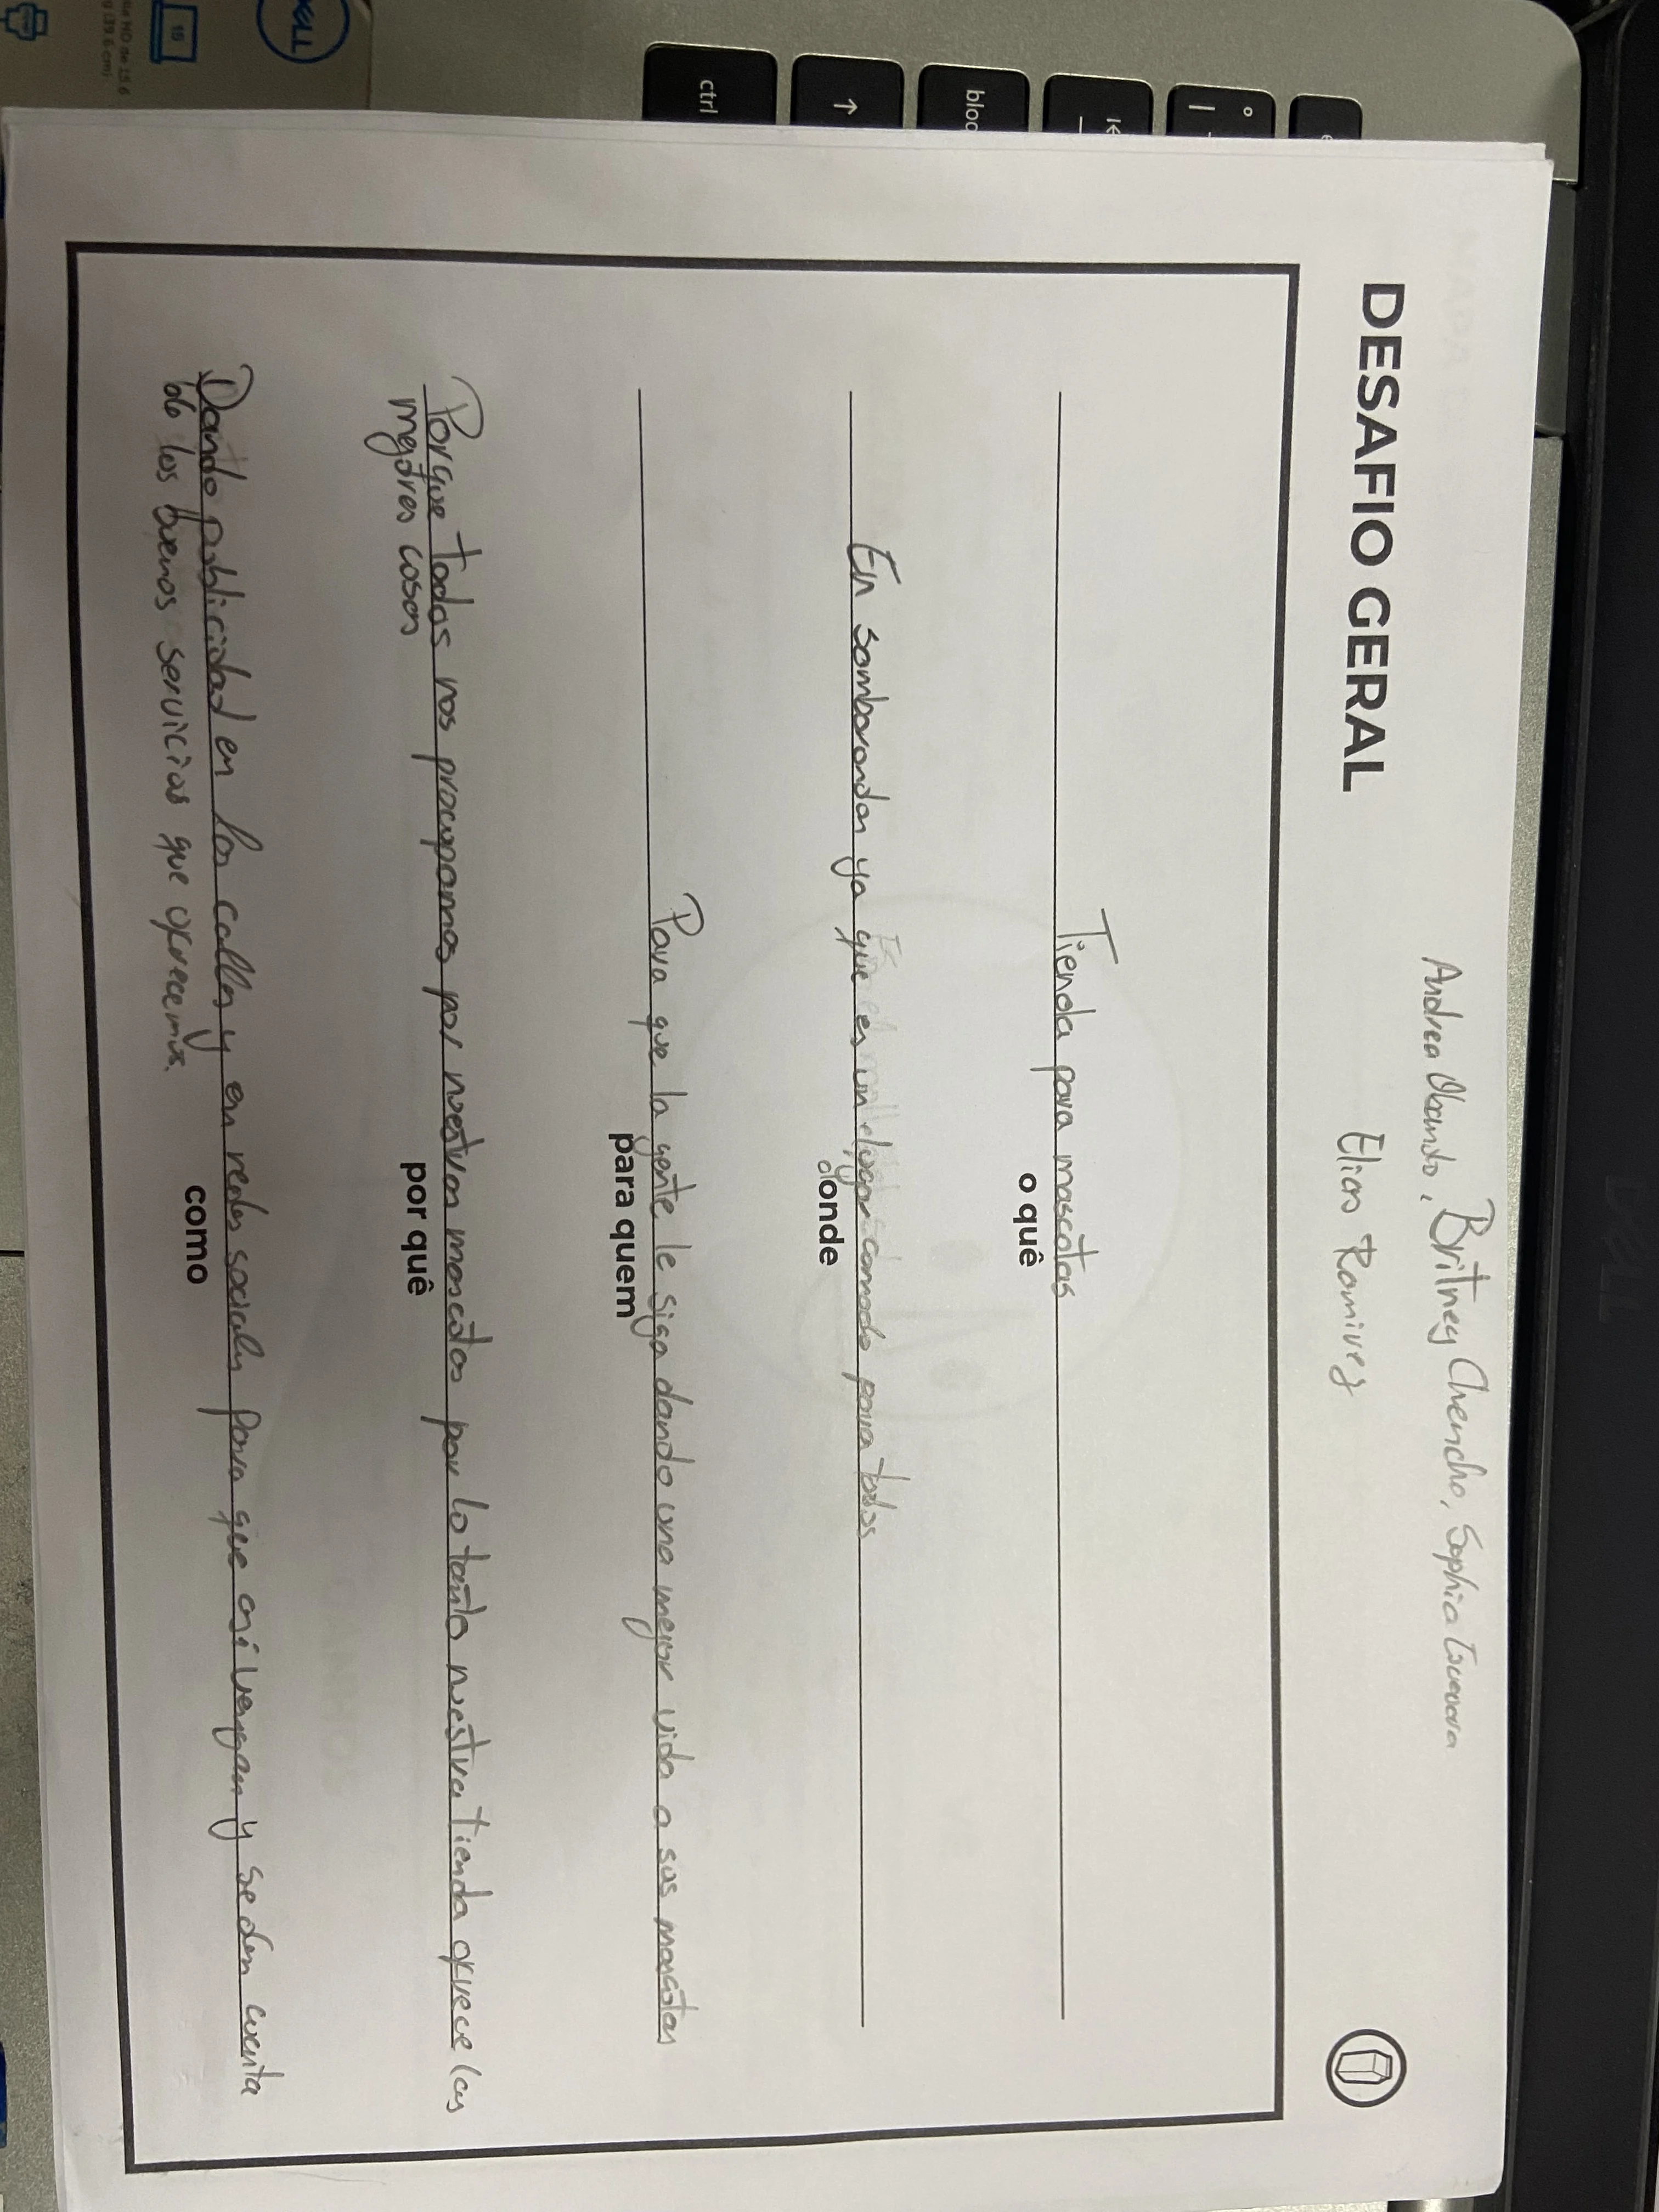 DESAFIO GERAL
Andrea Obando, Britney Chencho, Sophia
Elias Ramirez
Tienda para mascotas
o quê
En Samborondon ya que es un lugar comodo para todos
donde
Para que la gente le siga dando una mejor vida a sus mascotas
para quem
Porque todos nos procupamos por nuestras mascotas por lo tanto nuestra tienda ofrece las
mejores cosas
por quê
Dando publicidad en las calles y en redes sociales para que asi vengan y se den cuenta
de los buenos servicios que ofrecemos.
como
ctrl
↑
bloq
DELL
15